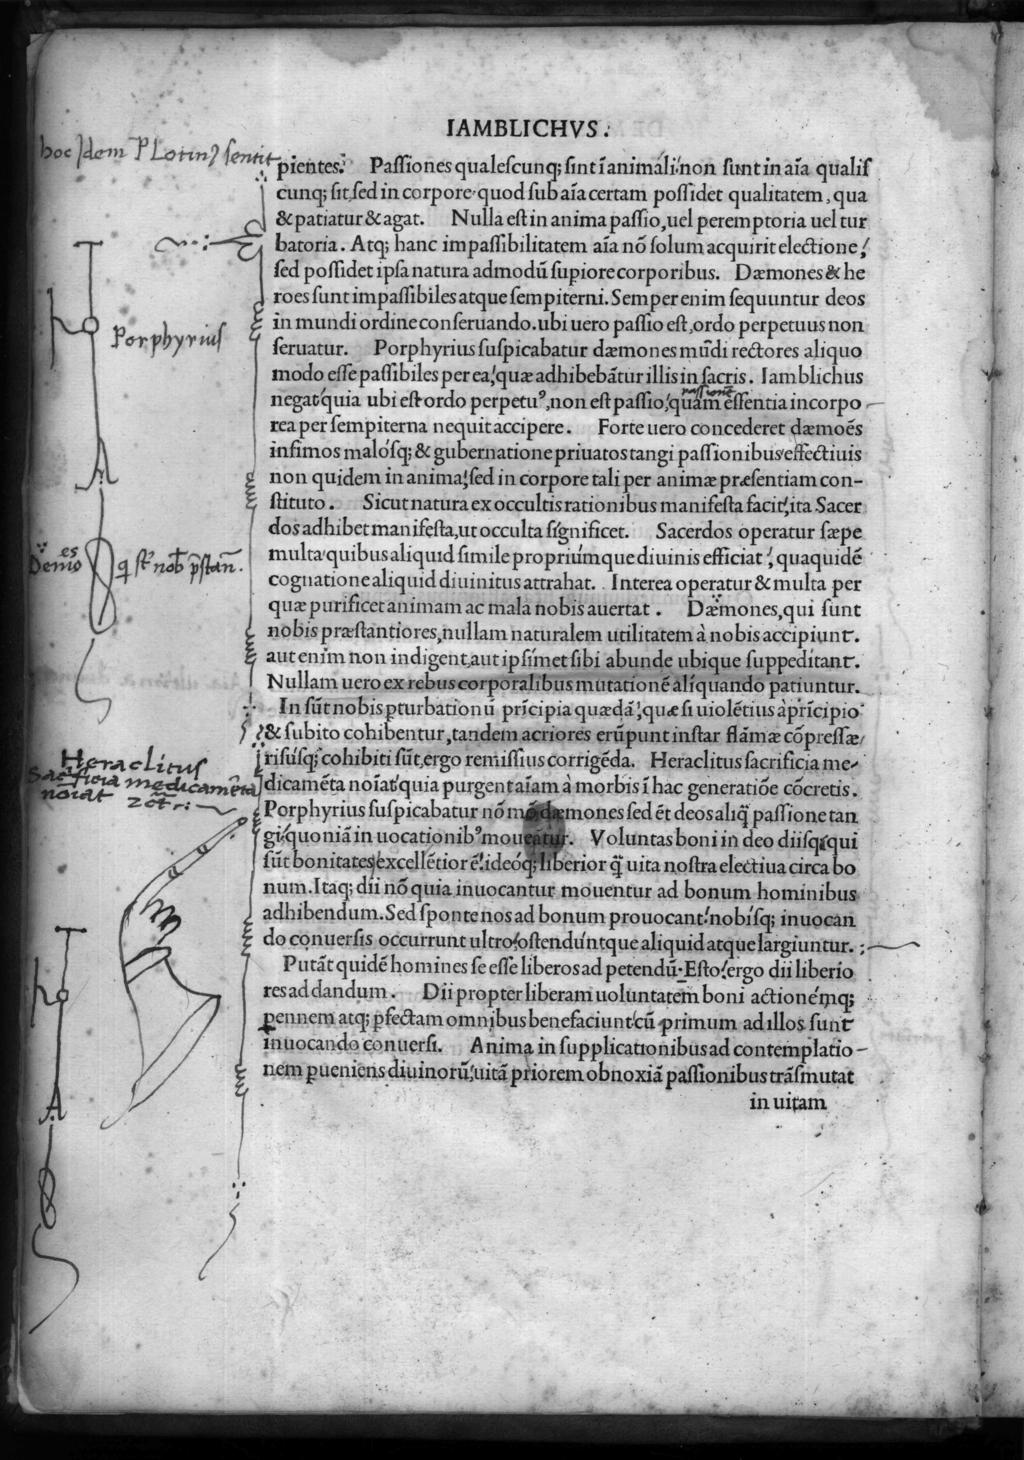 IAMBLICHVS.
hoc Idem PLotinꝰ sentit
pientes. Passiones qualescunq; sint ī animali: non sunt in aīa qualis
cunq; sit, sed in corpore quod sub aīa certam possidet qualitatem, qua
& patiatur & agat. Nulla est in anima passio, uel peremptoria uel tur
batoria. Atq; hanc impassibilitatem aīa nō solum acquirit electione,
sed possidet ipsa natura admodū supiore corporibus. Dæmones & he
roes sunt impassibiles atque sempiterni. Semper enim sequuntur deos
in mundi ordine conseruando. ubi uero passio est, ordo perpetuus non
Porphyrius
seruatur. Porphyrius suspicabatur dæmones mūdi rectores aliquo
modo esse passibiles per ea, quæ adhibebātur illis in sacris. Iamblichus
passionē
negat quia ubi est ordo perpetuꝰ, non est passio, quam essentia incorpo
rea per sempiterna nequit accipere. Forte uero concederet dæmoēs
infimos malosq; & gubernatione priuatos tangi passionibus effectiuis
non quidem in anima, sed in corpore tali per animæ præsentiam con-
stituto. Sicut natura ex occultis rationibus manifesta facit, ita Sacer
dos adhibet manifesta, ut occulta significet. Sacerdos operatur sæpe
Demoēs q̄ st̄ nob̄ p̄stan̄.
multa quibus aliquid simile propriumque diuinis efficiat, quaquidē
cognatione aliquid diuinitus attrahat. Interea operatur & multa per
quæ purificet animam ac mala nobis auertat. Dæmones, qui sunt
nobis præstantiores, nullam naturalem utilitatem à nobis accipiunt.
aut enim non indigent, aut ipsimet sibi abunde ubique suppeditant.
Nullam uero ex rebus corporalibus mutationē aliquando patiuntur.
In sūt nobis pturbationū prīcipia quædā, quæ si uiolētius à prīcipio
& subito cohibentur, tandem acriores erūpunt instar flāmæ cōpressæ
Heraclitus
Sacrificia medicamēta
noīat
risusq; cohibiti sūt, ergo remissius corrigēda. Heraclitus sacrificia me-
dicamēta noīat quia purgent aīam à morbis ī hac generatiōe cōcretis.
Porphyrius suspicabatur nō mō dæmones sed ēt deos aliq̄ passione tan
gi, quoniā in uocationibꝰ moueātur. Voluntas boni in deo diisq; qui
sūt bonitates, excellētior ē, ideoq; liberior q̄ uita nostra electiua circa bo
num. Itaq; dii nō quia inuocantur mouentur ad bonum hominibus
adhibendum. Sed sponte nos ad bonum prouocant, nobisq; inuocan
do conuersis occurrunt ultro, ostenduntque aliquid atque largiuntur.
Putāt quidē homines se esse liberos ad petendū. Esto, ergo dii liberio
res ad dandum. Dii propter liberam uoluntatem boni actionemq;
pennem atq; pfectam omnibus benefaciunt cū primum ad illos sunt
inuocando conuersi. Anima in supplicationibus ad contemplatio-
nem pueniens diuinorū, uitā priorem obnoxiā passionibus trāsmutat
in uitam